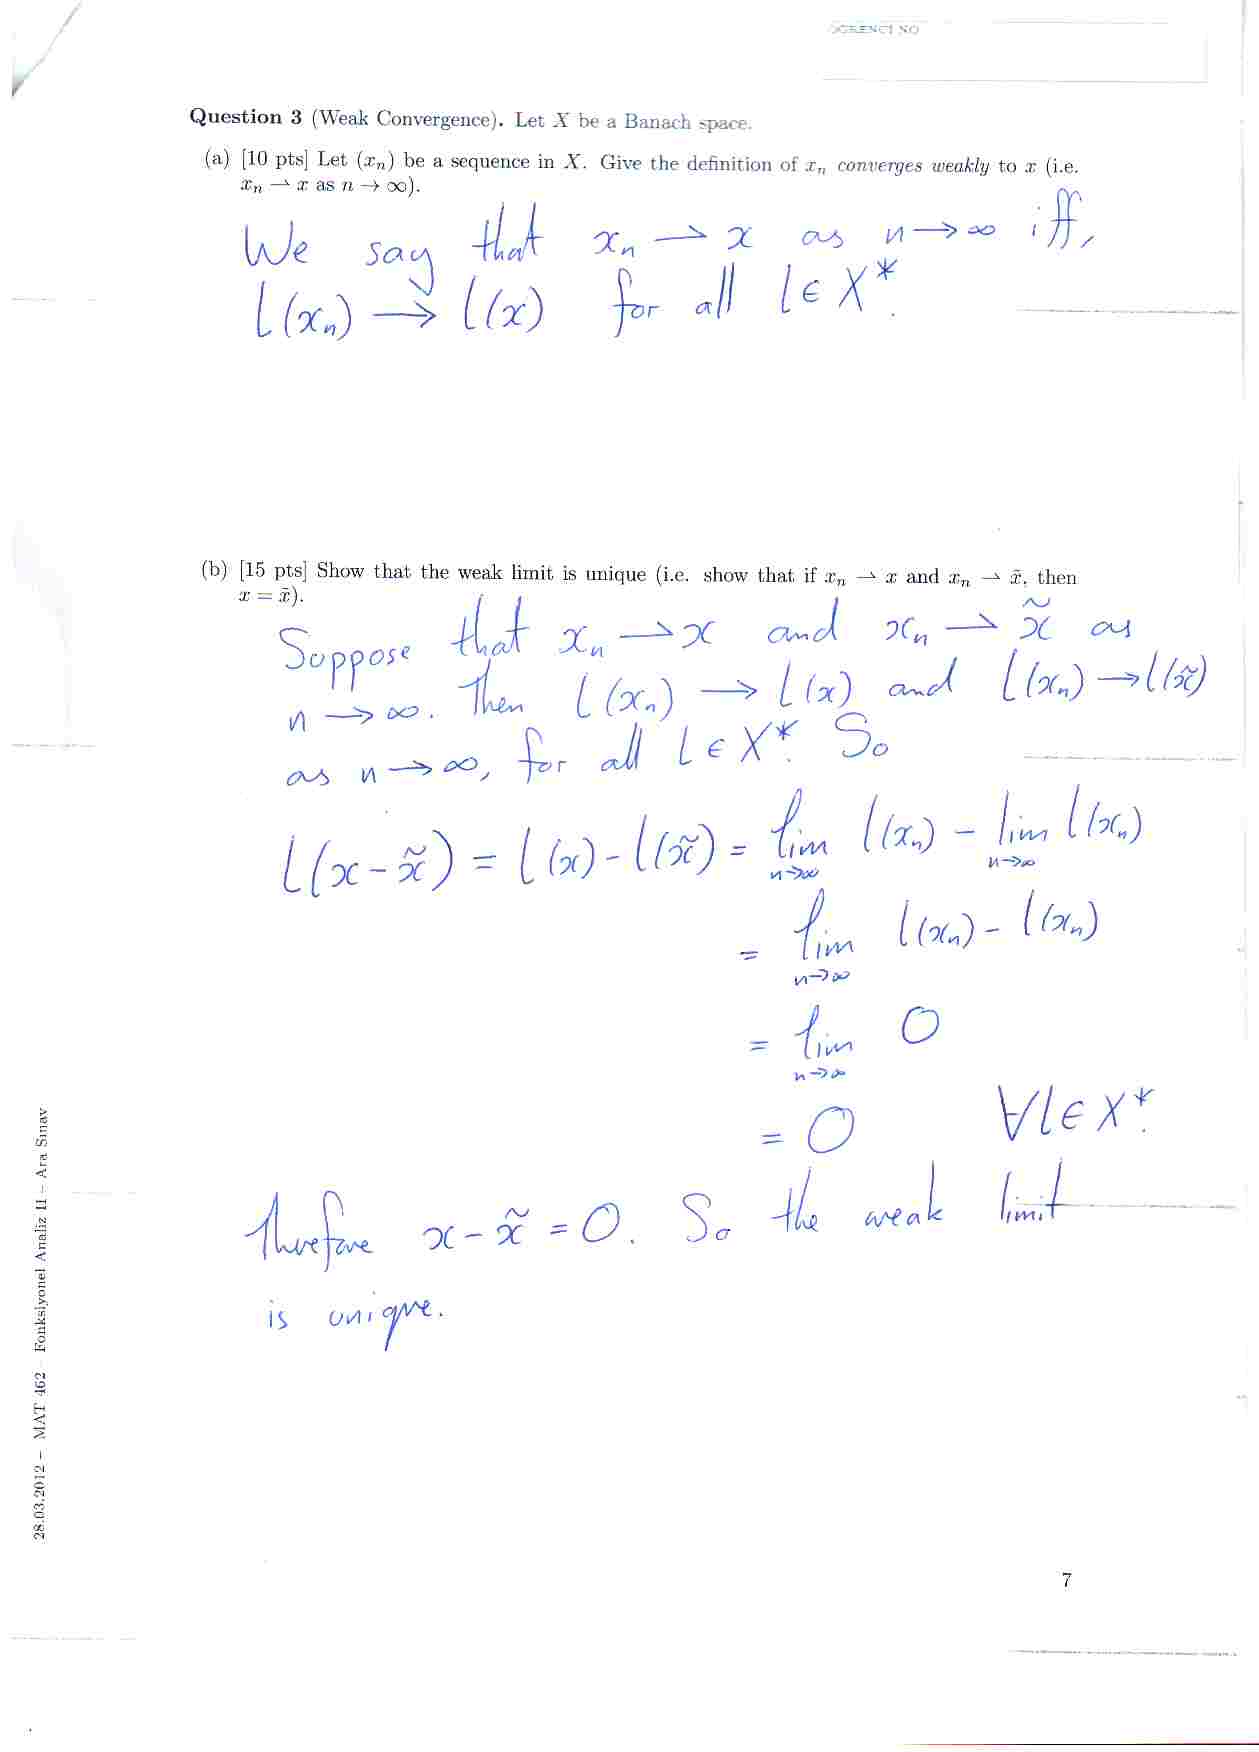 ÖĞRENCİ NO
Question 3 (Weak Convergence). Let X be a Banach space.
(a) [10 pts] Let (xₙ) be a sequence in X. Give the definition of xₙ converges weakly to x (i.e.
xₙ ⇀ x as n → ∞).
We say that xₙ ⇀ x as n → ∞ iff,
l(xₙ) → l(x) for all l ∈ X*.
(b) [15 pts] Show that the weak limit is unique (i.e. show that if xₙ ⇀ x and xₙ ⇀ x̃, then
x = x̃).
Suppose that xₙ ⇀ x and xₙ ⇀ x̃ as
n → ∞. Then l(xₙ) → l(x) and l(xₙ) → l(x̃)
as n → ∞, for all l ∈ X*. So
l(x - x̃) = l(x) - l(x̃) = lim n→∞ l(xₙ) - lim n→∞ l(xₙ)
= lim n→∞ l(xₙ) - l(xₙ)
= lim n→∞ 0
= 0 ∀l ∈ X*.
Therefore x - x̃ = 0. So the weak limit
is unique.
28.03.2012 – MAT 462 – Fonksiyonel Analiz II – Ara Sınav
7